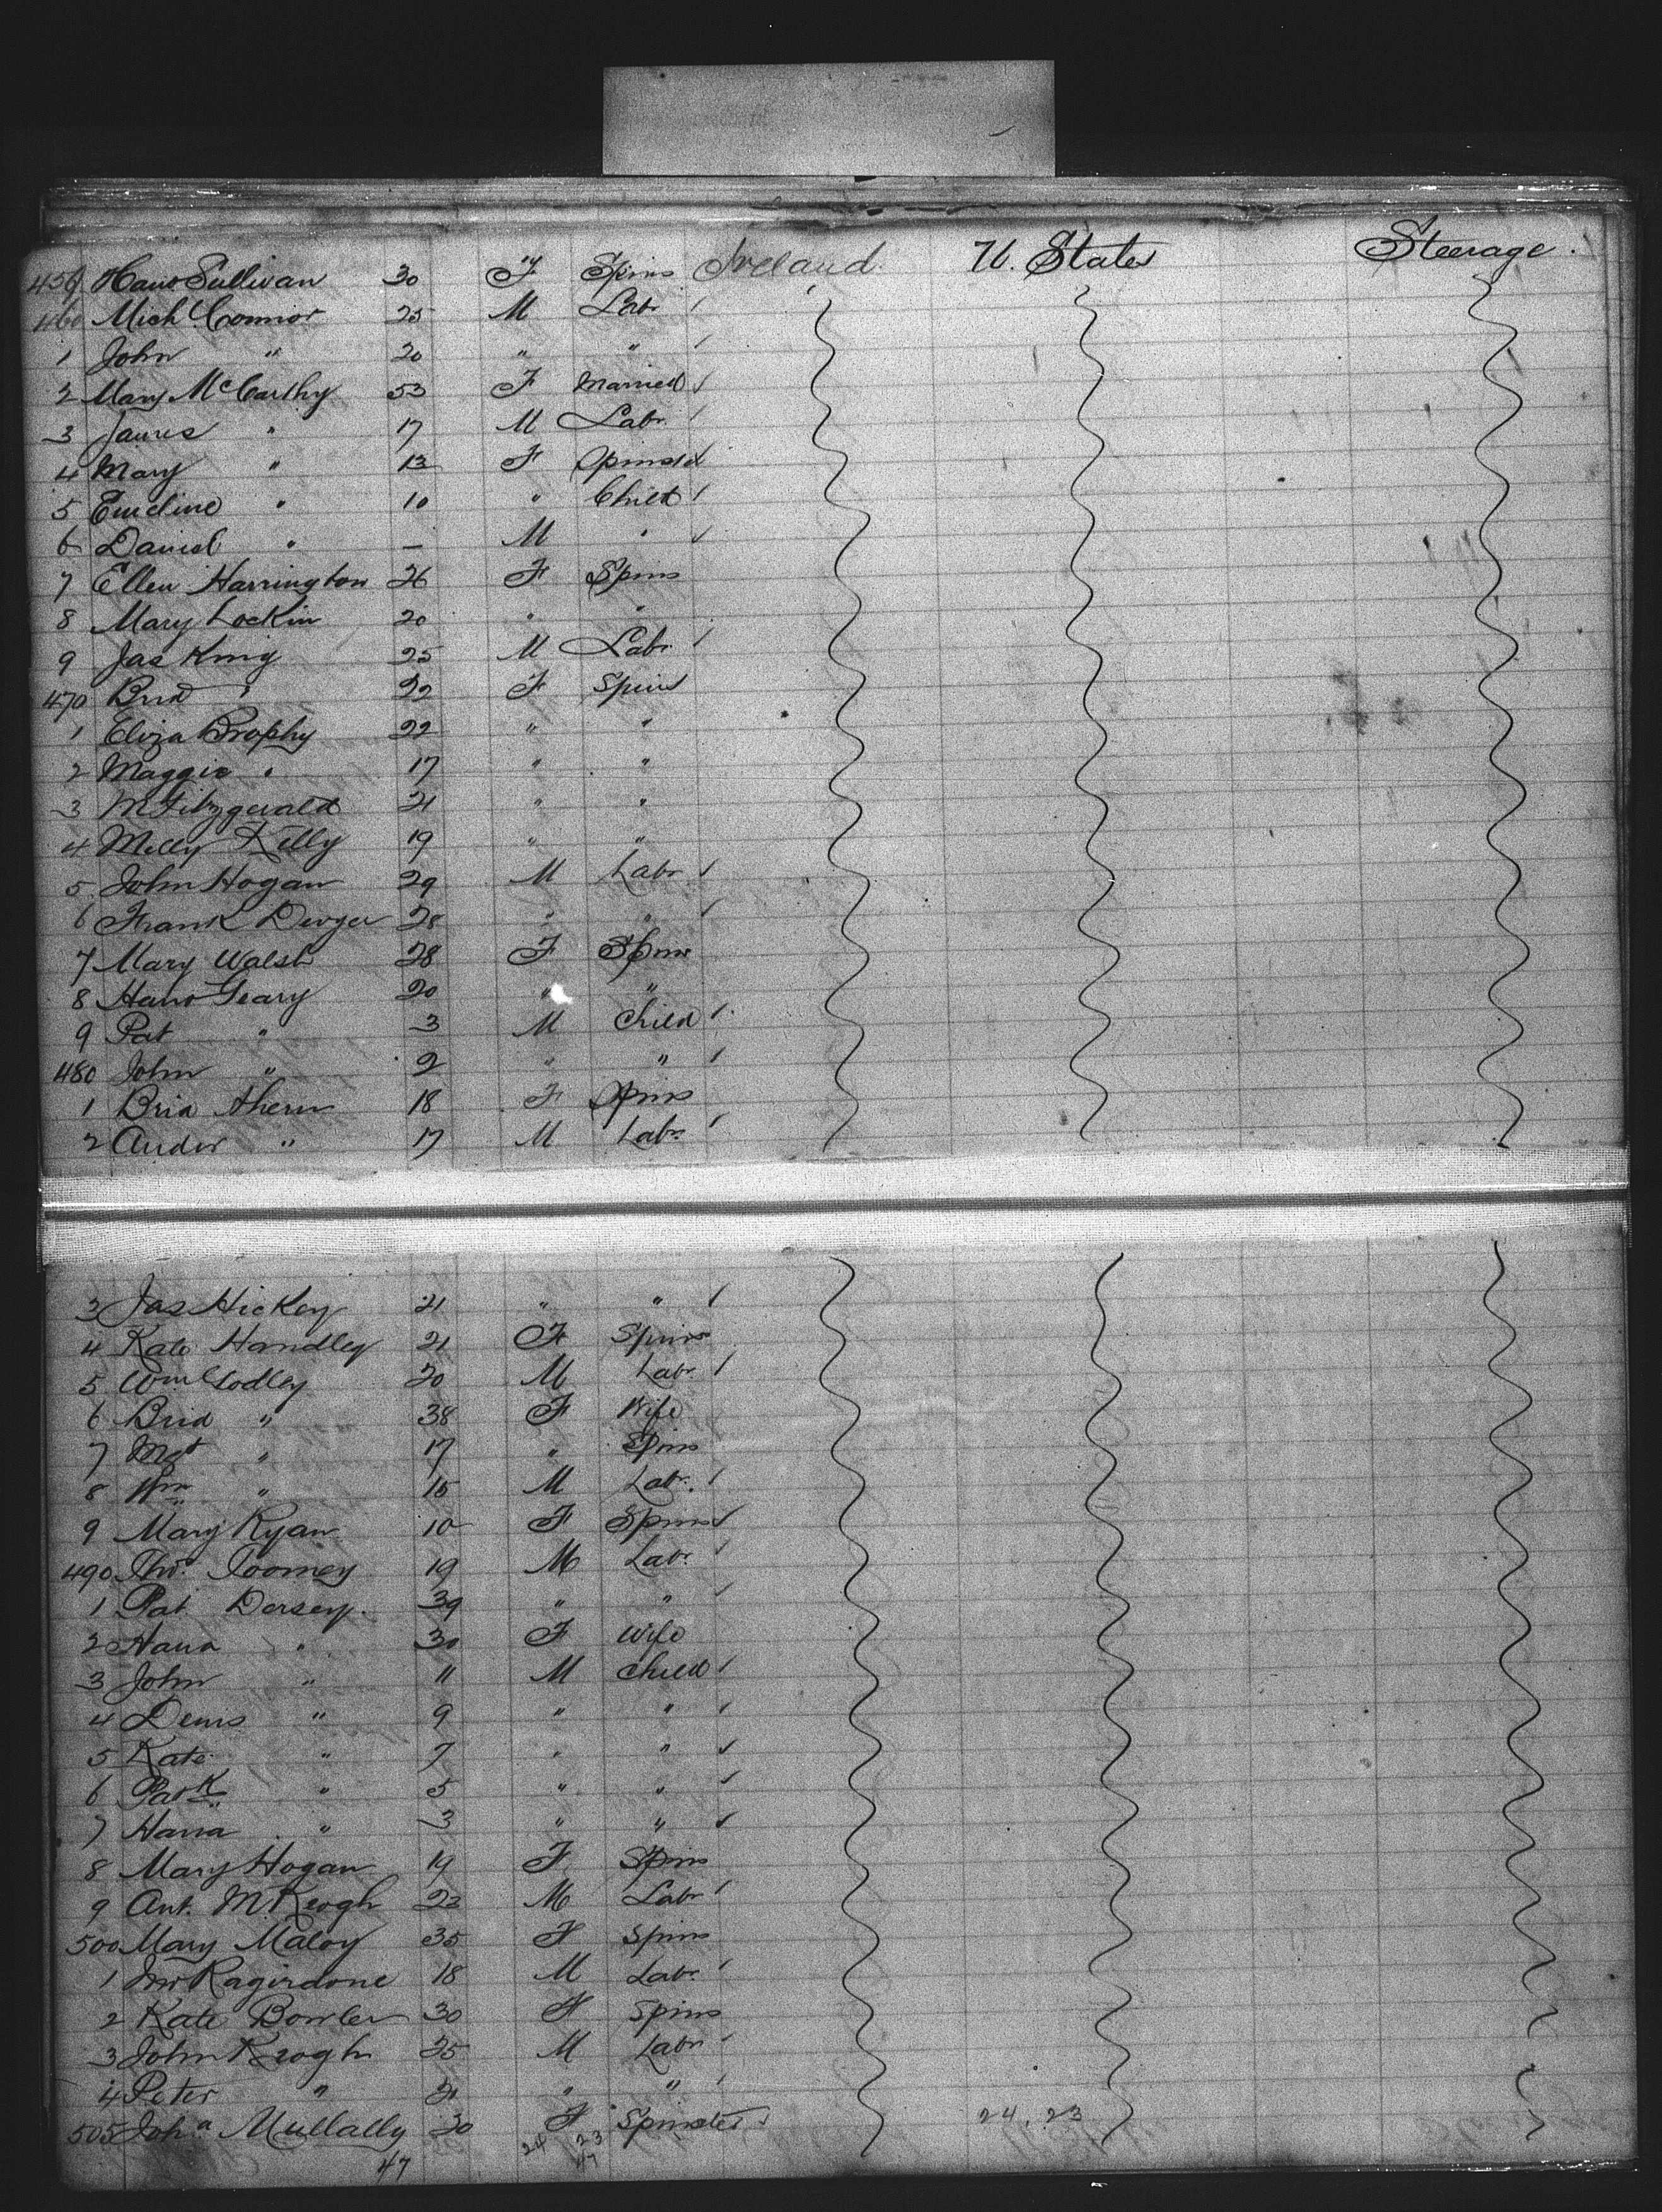 459 Hano Sullivan 30 F Spins Ireland U. States Steerage
460 Michl Connor 25 M Labr
1 John " 20 " "
2 Mary McCarthy 53 F Married
3 James " 17 M Labr
4 Mary " 13 F Spinster
5 Emeline " 10 " Child
6 Daniel " — M "
7 Ellen Harrington 26 F Spins
8 Mary Lockin 20 " "
9 Jas King 25 M Labr
470 Brid " 22 F Spins
1 Eliza Brophy 22 " "
2 Maggie " 17 " "
3 M Fitzgerald 21 " "
4 Kelly 19 " "
5 John Hogan 29 M Labr
6 Frank 28 " "
7 Mary Walsh 28 F Spins
8 Hano Geary 20 " "
9 Pat " 3 M Child
480 John " 2 " "
1 Brid Ahern 18 F Spins
2 Andw " 17 M Labr
3 Jas Hickey 21 " "
4 Kate Handley 21 F Spins
5 Wm Godley M Labr
6 Brid " 38 F Wife
7 Mgt " 17 " Spins
8 Wm " 15 M Labr.
9 Mary Ryan 10 F Spins
490 Thos Toomey 19 M Labr
1 Pat Dorsey 39 " "
2 Hana " 30 F Wife
3 John " 11 M Child
4 Denis " 9 " "
5 Kate " 7 " "
6 Patk " 5 " "
7 Hana " 3 " "
8 Mary Hogan 19 F Spins
9 Ant. McKeogh 22 M Labr
500 Mary Maloy 35 F Spins
1 Ragirdone 18 M Labr
2 Kate Bowler 30 F Spins
3 John Keogh 25 M Labr
4 Peter " 21 " "
505 Joha Mullally 30 F Spinster 24.23
47 24 23
47